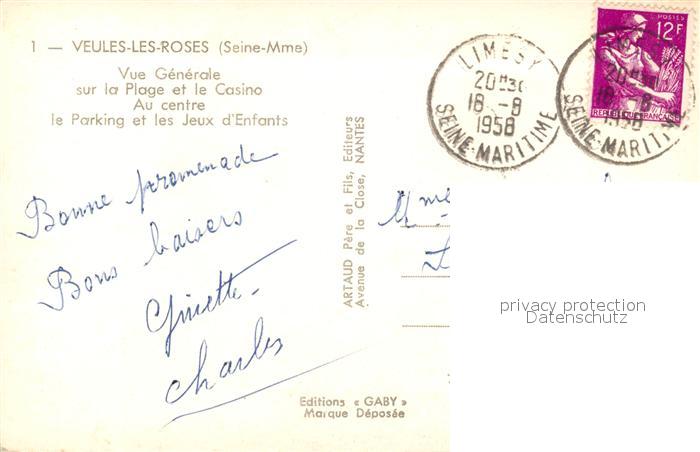 1 — VEULES-LES-ROSES (Seine-Mme)
Vue Générale
sur la Plage et le Casino
Au centre
le Parking et les Jeux d'Enfants
Bonne promenade
Bons baisers
Ginette
Charles
ARTAUD Père et Fils, Editeurs
Avenue de la Close, NANTES
Editions « GABY »
Marque Déposée
LIMESY
20 H 30
18 - 8
1958
SEINE-MARITIME
POSTES
12F
REPUBLIQUE FRANÇAISE
20 H 30
18 - 8
1958
SEINE-MARITIM
Mme
privacy protection
Datenschutz